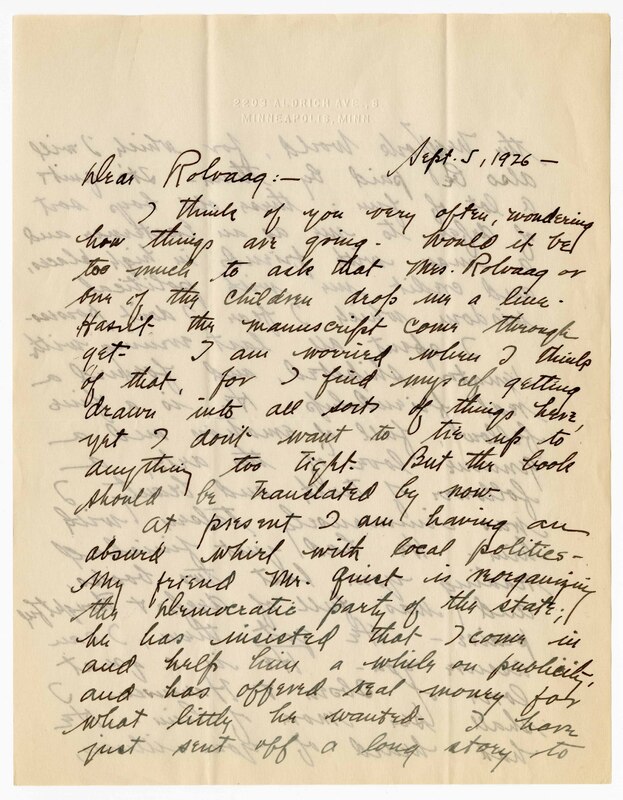 2203 ALDRICH AVE., S
MINNEAPOLIS, MINN
Sept. 5, 1926 —
Dear Rolvaag:—
I think of you very often, wondering
how things are going. Would it be
too much to ask that Mrs. Rolvaag or
one of the children drop me a line.
Hasn't the manuscript come through
yet. I am worried when I think
of that, for I find myself getting
drawn into all sorts of things here,
yet I don't want to tie up to
anything too tight. But the book
should be translated by now.
At present I am having an
absurd whirl with local politics.
My friend Mr. Quist is reorganizing
the Democratic party of the state;
he has insisted that I come in
and help him a while on publicity,
and has offered real money for
what little he wanted. I have
just sent off a long story to